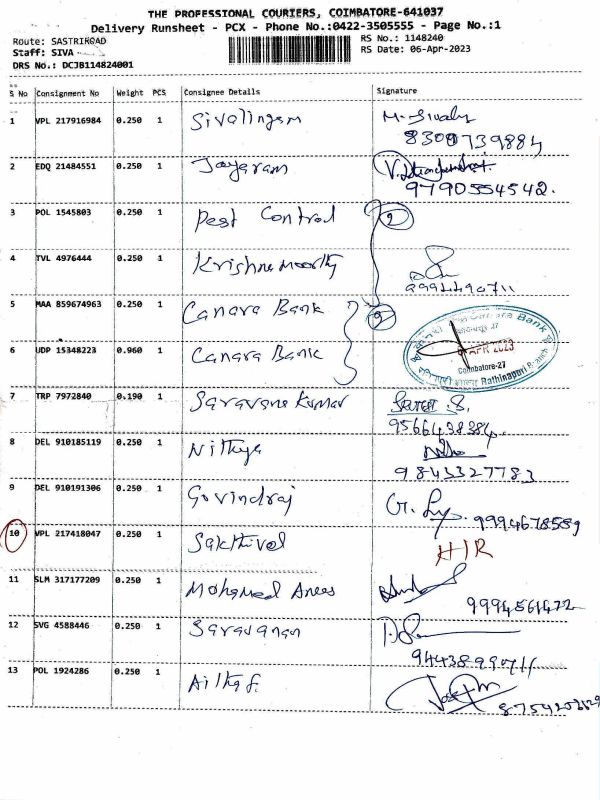 THE PROFESSIONAL COURIERS, COIMBATORE-641037
Delivery Runsheet - PCX - Phone No.:0422-3505555 - Page No.:1
Route: SASTRIROAD
RS No.: 1148240
Staff: SIVA
RS Date: 06-Apr-2023
DRS No.: DCJB114824001
S No Consignment No Weight PCS Consignee Details Signature
1 VPL 217916984 0.250 1 Sivalingam
8300739884
2 EDQ 21484551 0.250 1 Jayaram
9790554542.
3 POL 1545803 0.250 1 Pest Control 2
4 TVL 4976444 0.250 1 Krishnamoorthy
9994490711
5 MAA 859674963 0.250 1 Canara Bank
Canara Bank
APR 2023
Coimbatore-27
Rathinapuri Branch
6 UDP 15348223 0.960 1 Canara Bank
7 TRP 7972840 0.190 1 Saravana Kumar
9566438384
8 DEL 910185119 0.250 1 Nithya
9843327783
9 DEL 910191306 0.250 1 Govindraj
9994678589
10 VPL 217418047 0.250 1 Sakthivel H/R
11 SLM 317177209 0.250 1 Mohamed Anees
9994561472
12 SVG 4588446 0.250 1 Saravanan
9443899071
13 POL 1924286 0.250 1